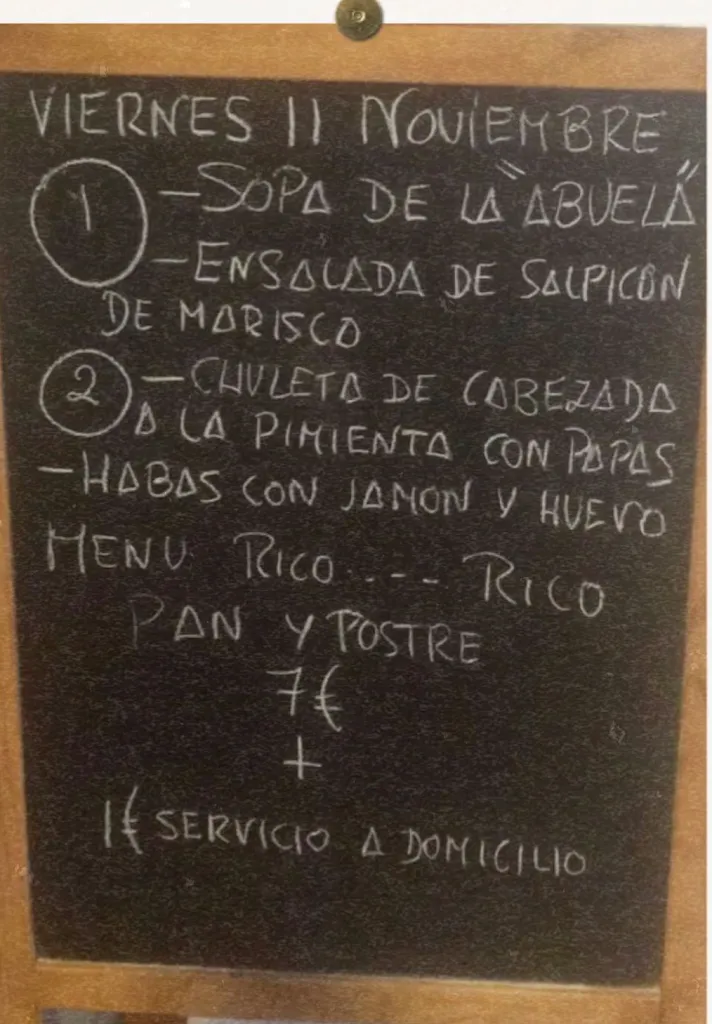 VIERNES 11 NOVIEMBRE
1 - SOPA DE LA "ABUELA"
- ENSALADA DE SALPICON
DE MARISCO
2 - CHULETA DE CABEZADA
A LA PIMIENTA CON PAPAS
- HABAS CON JAMON Y HUEVO
MENU RICO .--- RICO
PAN Y POSTRE
7€
+
1€ SERVICIO A DOMICILIO